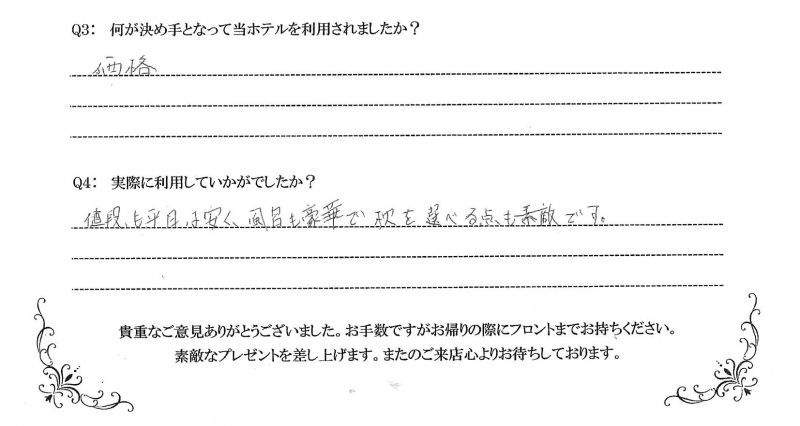 Q3: 何が決め手となって当ホテルを利用されましたか？
価格
Q4: 実際に利用していかがでしたか？
値段も平日は安く、風呂も豪華で枕を選べる点も素敵です。
貴重なご意見ありがとうございました。お手数ですがお帰りの際にフロントまでお持ちください。
素敵なプレゼントを差し上げます。またのご来店心よりお待ちしております。